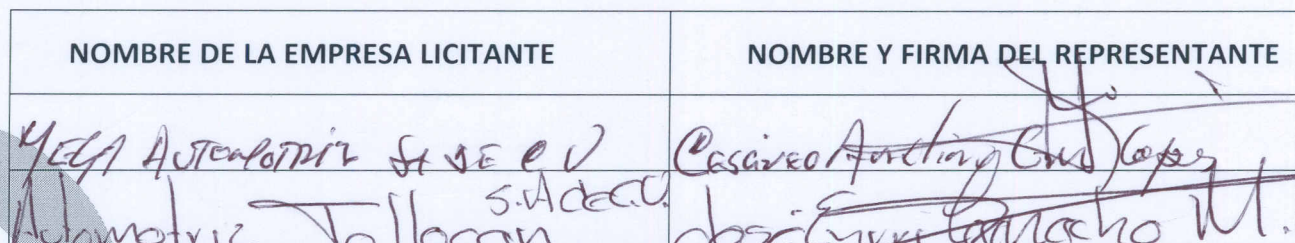 NOMBRE DE LA EMPRESA LICITANTE NOMBRE Y FIRMA DEL REPRESENTANTE
MEGA AUTOMOTRIZ SA DE CV Cruz López
Automotriz Tollocan S.A de C.V. José Camacho M.